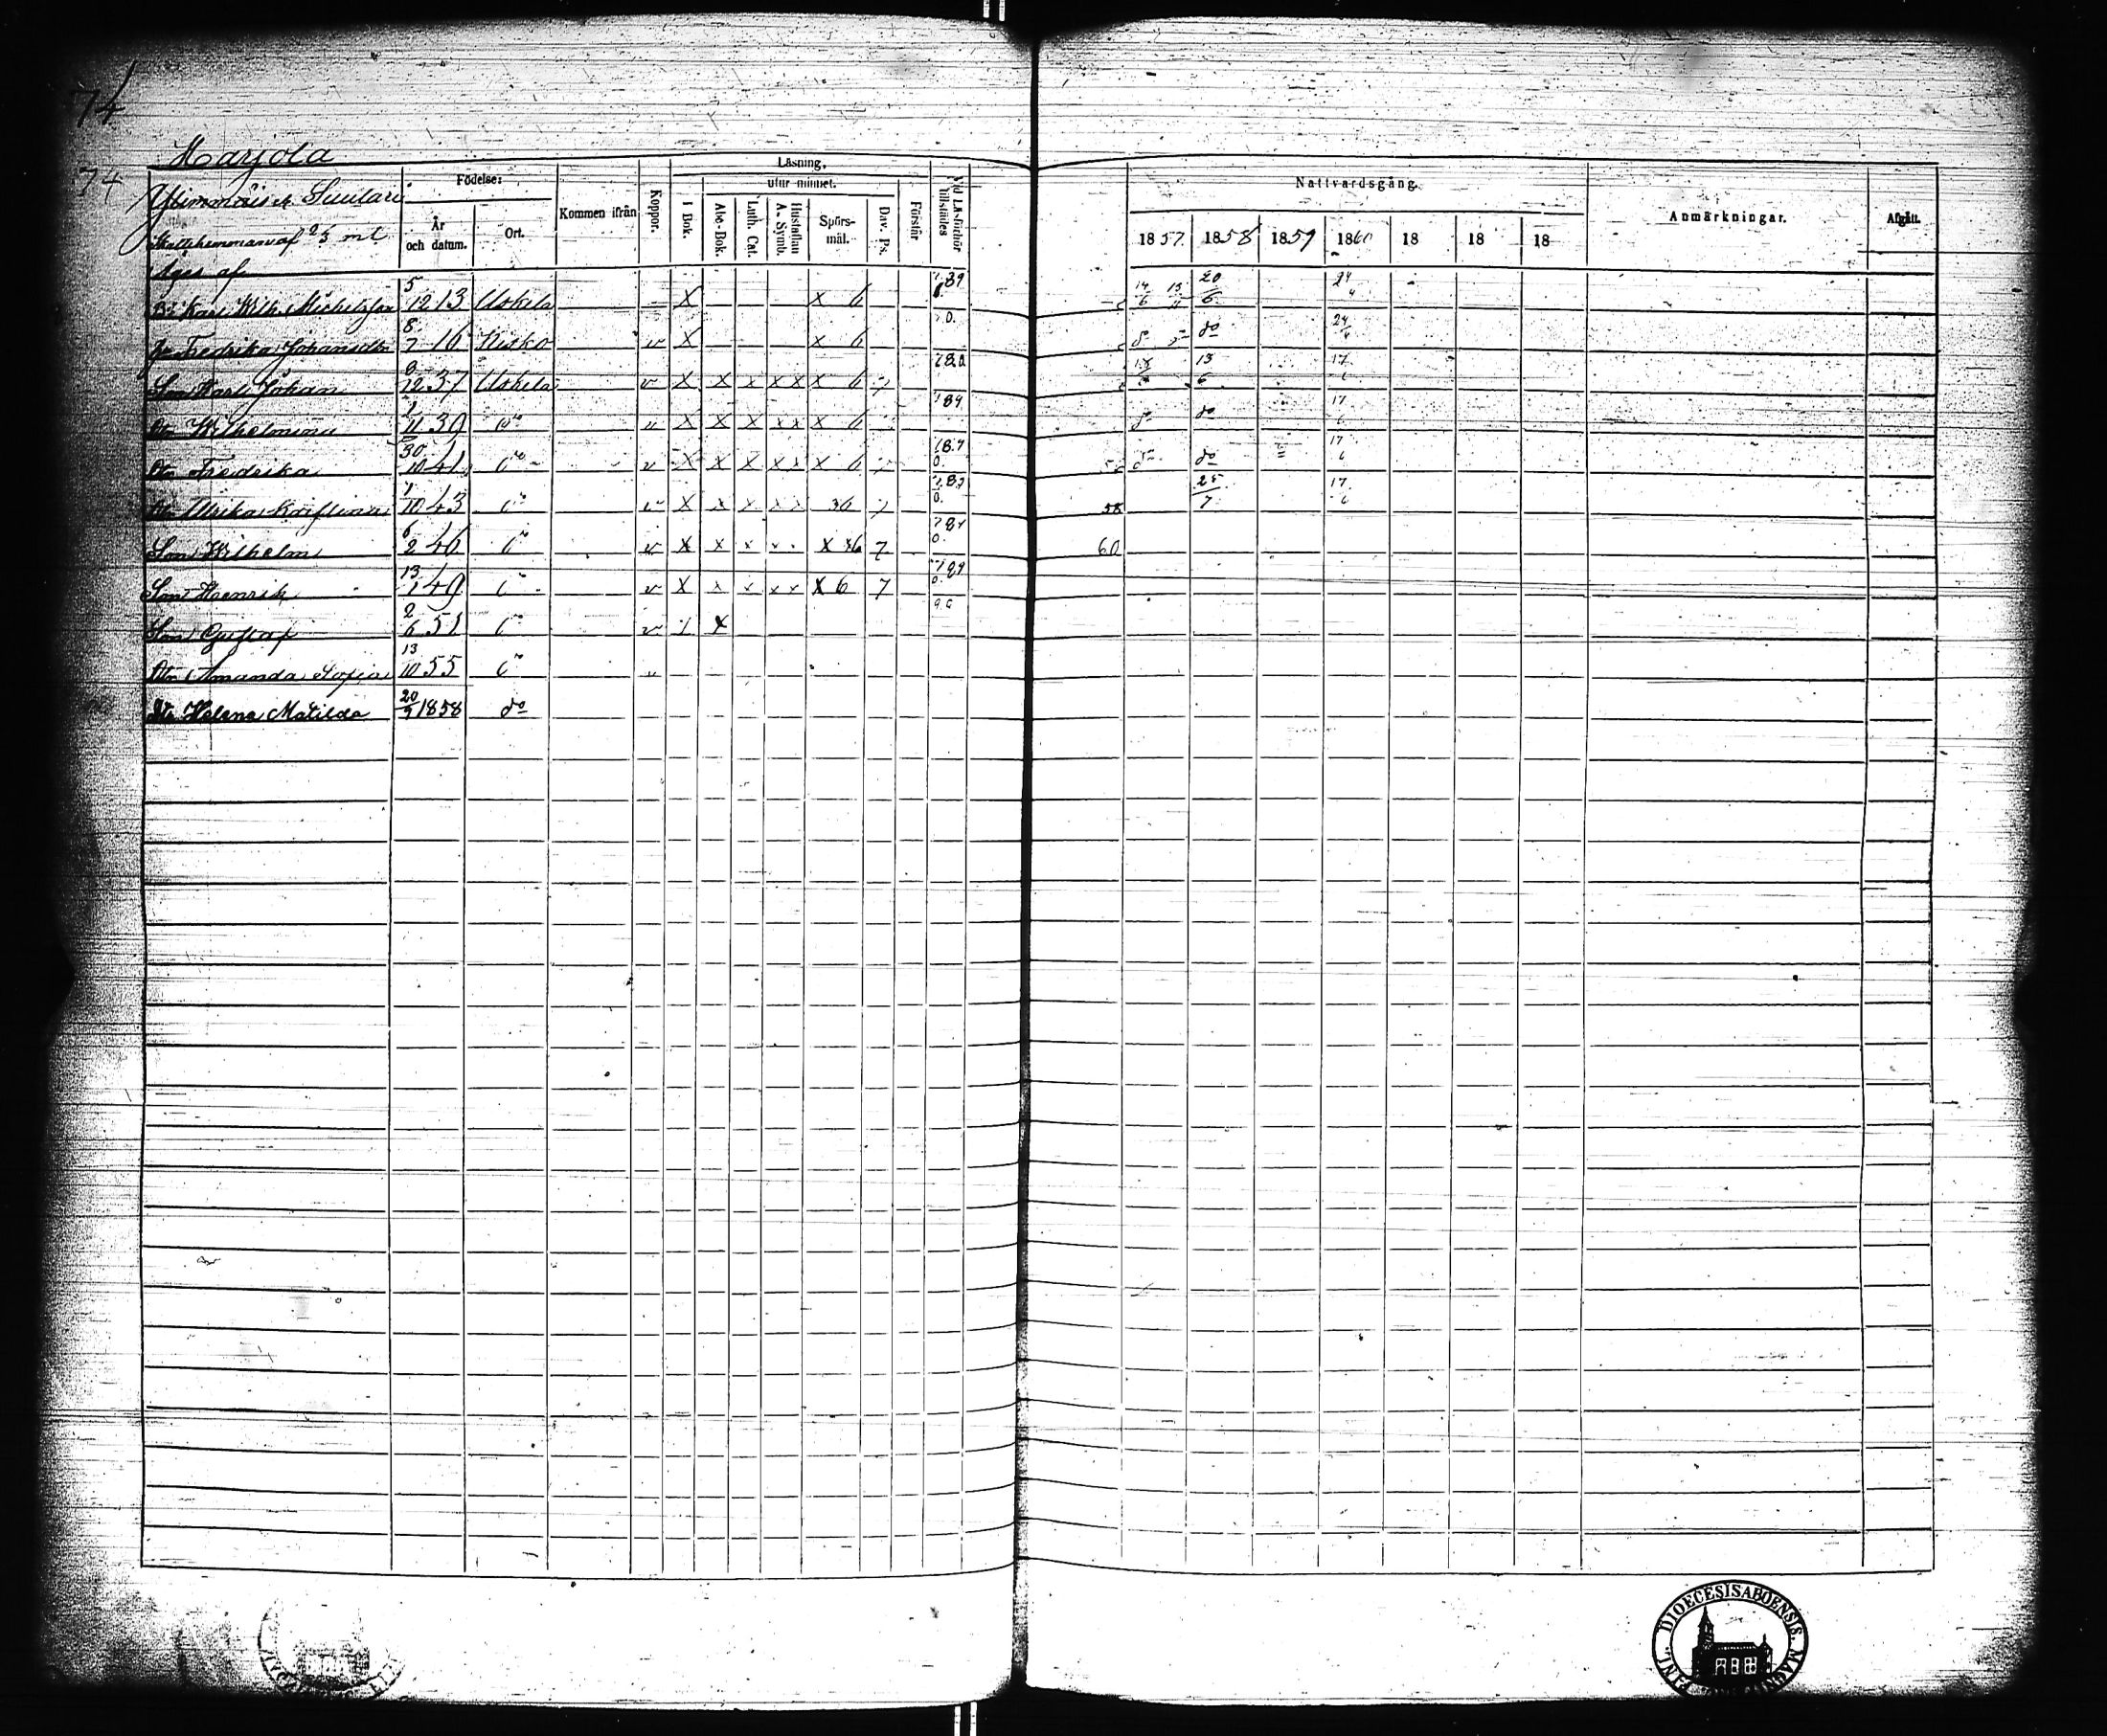 74
Marjola
74
Skattehemman af 2/3 ml
Äges af
Födelse:
År och datum.
Ort.
Kommen ifrån
Koppor.
Läsning,
I Bok.
utur minnet.
Abc-Bok.
Luth. Cat.
Hustaflan A. Symb.
Spörs-mål.
Dav. Ps.
Förstår
Vid Läsförhör tillstädes
Nattvardsgång.
1857 1858 1859 1860 18 18 18
Anmärkningar.
Afgått.
Karl Wilh. Michelsson 5/12 13 Uskela X X 6 14/6 20/6 24/4
Fredrika Johansdtr 8/7 16 Kisko v X X 6 do 24/4
Son Karl Johan 12 37 Uskela v X X x x x X 6 7 13/6 17/6
Dtr Wilhelmina 11 39 do v X X X x x X 6 do 17/6
Dtr Fredrika 30/10 41 do v X X X x x X 6 7 do 17/6
Dtr Ulrika Kristina 1/10 43 do v X x x x x 7 58 25/7 17/6
Son Wilhelm 6/2 46 do v X x x 7 60
Son Henrik 13/1 49 do v X x x x x X 6 7
Son Gustaf 2/6 51 do v X
Dtr Amanda Sofia 13/10 55 do
Dtr Helena Matilda 20/9 1858 do
FINL. DIOECESIS ABOENSIS.